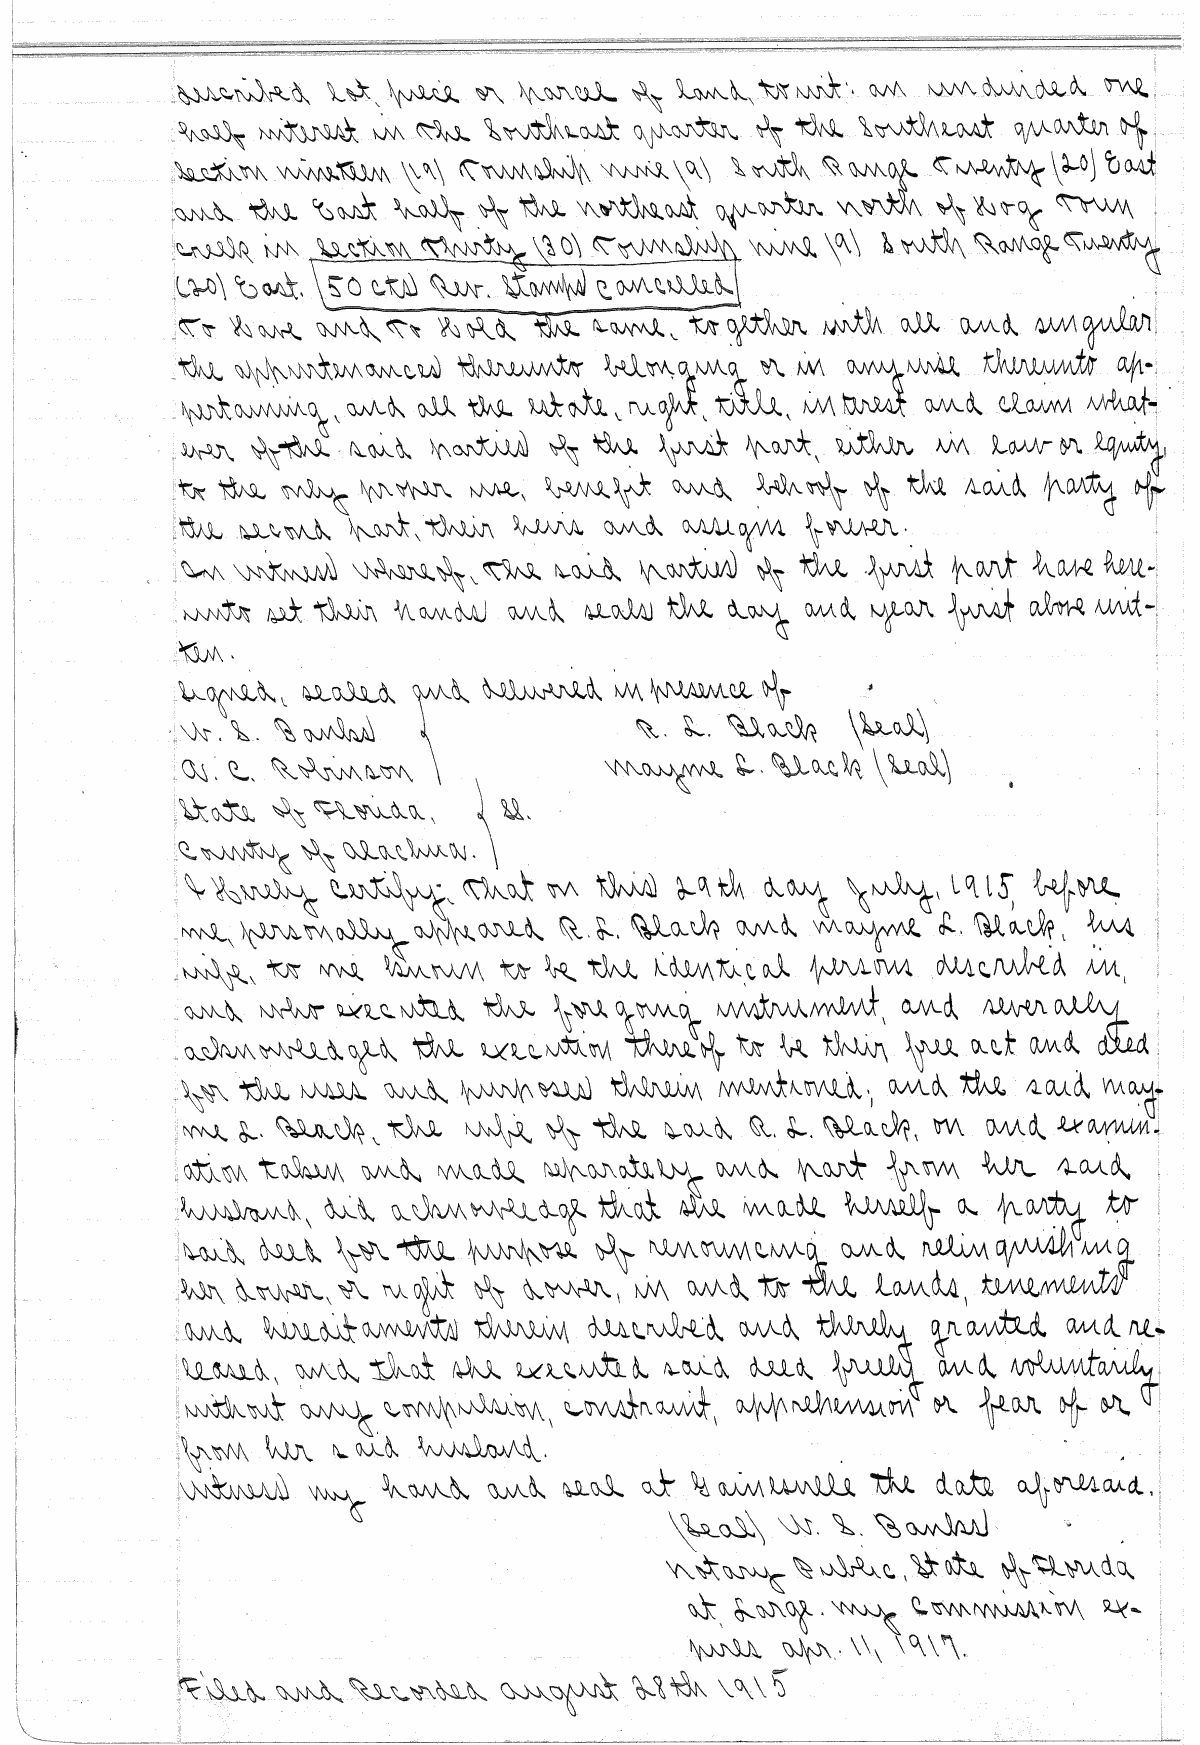 described lot, piece or parcel of land, to wit: an undivided one
half interest in the Southeast quarter of the Southeast quarter of
Section nineteen (19) Township nine (9) South Range Twenty (20) East
and the East half of the northeast quarter north of Hog Town
Creek in Section Thirty (30) Township nine (9) South Range Twenty
(20) East. 50 cts Rev. Stamps cancelled
To Have and To Hold the same, together with all and singular
the appurtenances thereunto belonging or in anywise thereunto ap-
pertaining, and all the estate, right, title, interest and claim what-
ever of the said parties of the first part, either in law or equity,
to the only proper use, benefit and behoof of the said party of
the second part, their heirs and assigns forever.
In witness whereof, The said parties of the first part have here-
unto set their hands and seals the day and year first above writ-
ten.
Signed, sealed and delivered in presence of
W. S. Banks R. L. Black (Seal)
A. C. Robinson Mayme L. Black (Seal)
State of Florida, SS.
County of Alachua.
I Hereby Certify; That on this 29th day July, 1915, before
me, personally appeared R. L. Black and Mayme L. Black, his
wife, to me known to be the identical persons described in,
and who executed the foregoing instrument, and severally
acknowledged the execution thereof to be their free act and deed
for the uses and purposes therein mentioned; and the said May-
me L. Black, the wife of the said R. L. Black, on and examin-
ation taken and made separately and part from her said
husband, did acknowledge that she made herself a party to
said deed for the purpose of renouncing and relinquishing
her dower, or right of dower, in and to the lands, tenements
and hereditaments therein described and thereby granted and re-
leased, and that she executed said deed freely and voluntarily
without any compulsion, constraint, apprehension or fear of or
from her said husband.
Witness my hand and seal at Gainesville the date aforesaid.
(Seal) W. S. Banks
Notary Public, State of Florida
at Large. My Commission ex-
pires Apr. 11, 1917.
Filed and Recorded August 28th 1915